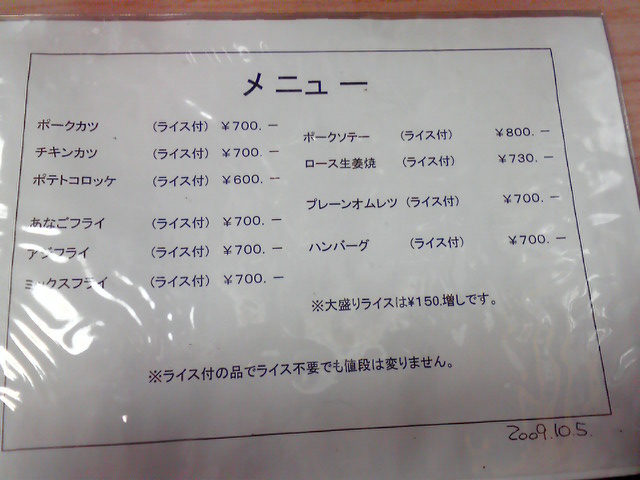 メニュー
ポークカツ (ライス付) ¥700.－
チキンカツ (ライス付) ¥700.－
ポテトコロッケ (ライス付) ¥600.－
あなごフライ (ライス付) ¥700.－
アジフライ (ライス付) ¥700.－
ミックスフライ (ライス付) ¥700.－
ポークソテー (ライス付) ¥800.－
ロース生姜焼 (ライス付) ¥730.－
プレーンオムレツ (ライス付) ¥700.－
ハンバーグ (ライス付) ¥700.－
※大盛りライスは¥150.増しです。
※ライス付の品でライス不要でも値段は変りません。
2009.10.5.